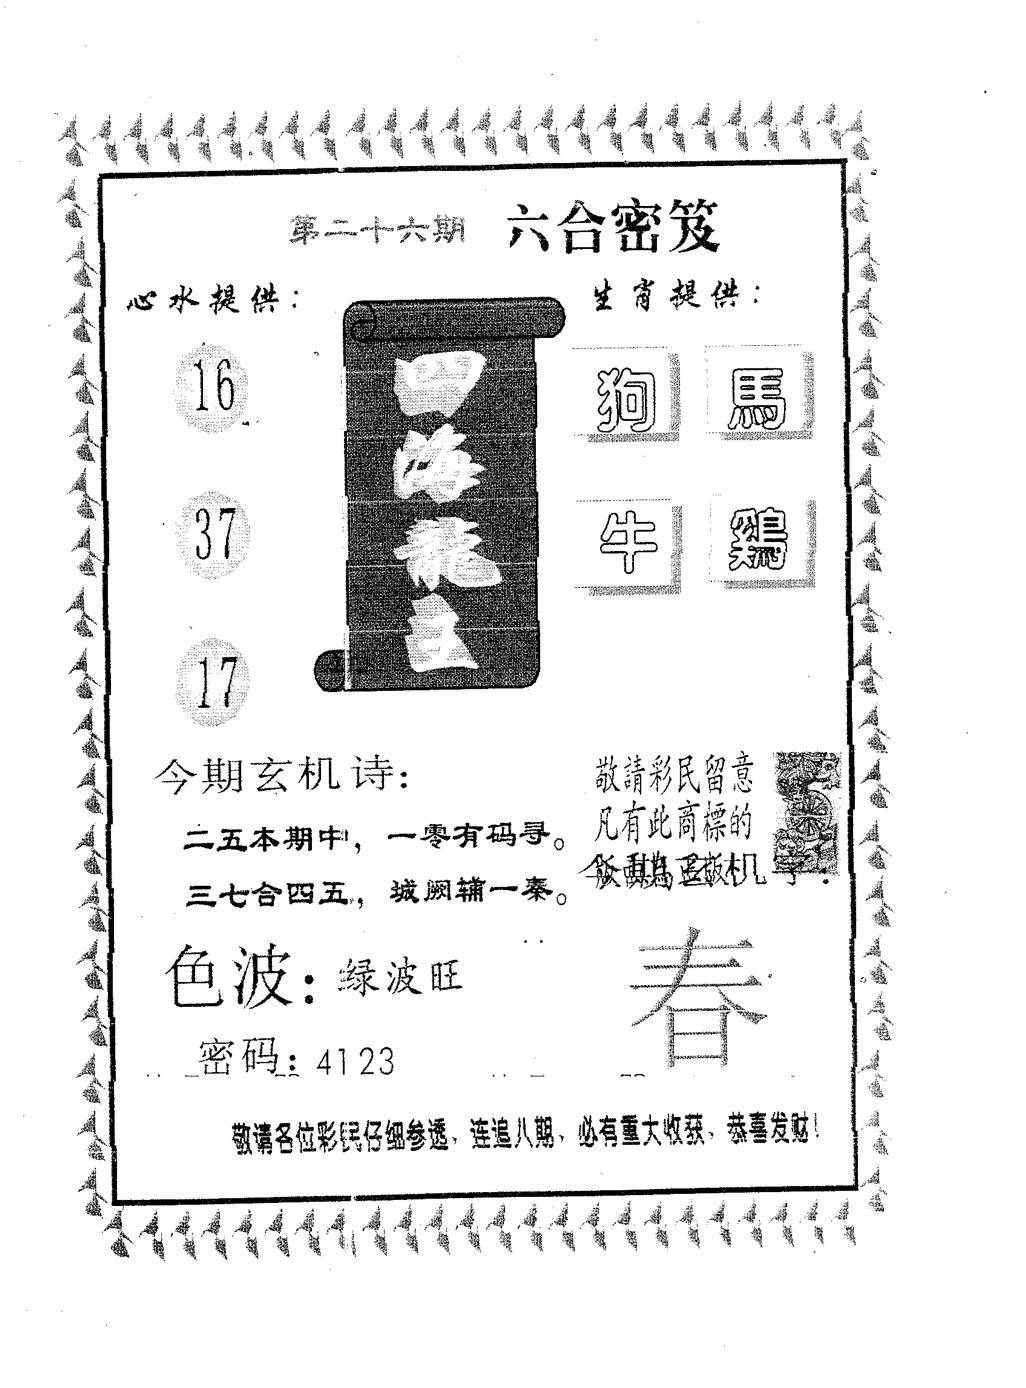 第二十六期 六合密笈
心水提供：
生肖提供：
16
37
17
四海龍王
狗 馬
牛 鷄
今期玄机诗：
二五本期中，一零有码寻。
三七合四五，城阙辅一秦。
敬請彩民留意
凡有此商標的
春
色波：绿波旺
密码：4123
敬请各位彩民仔细参透、连追八期、必有重大收获、恭喜发财！